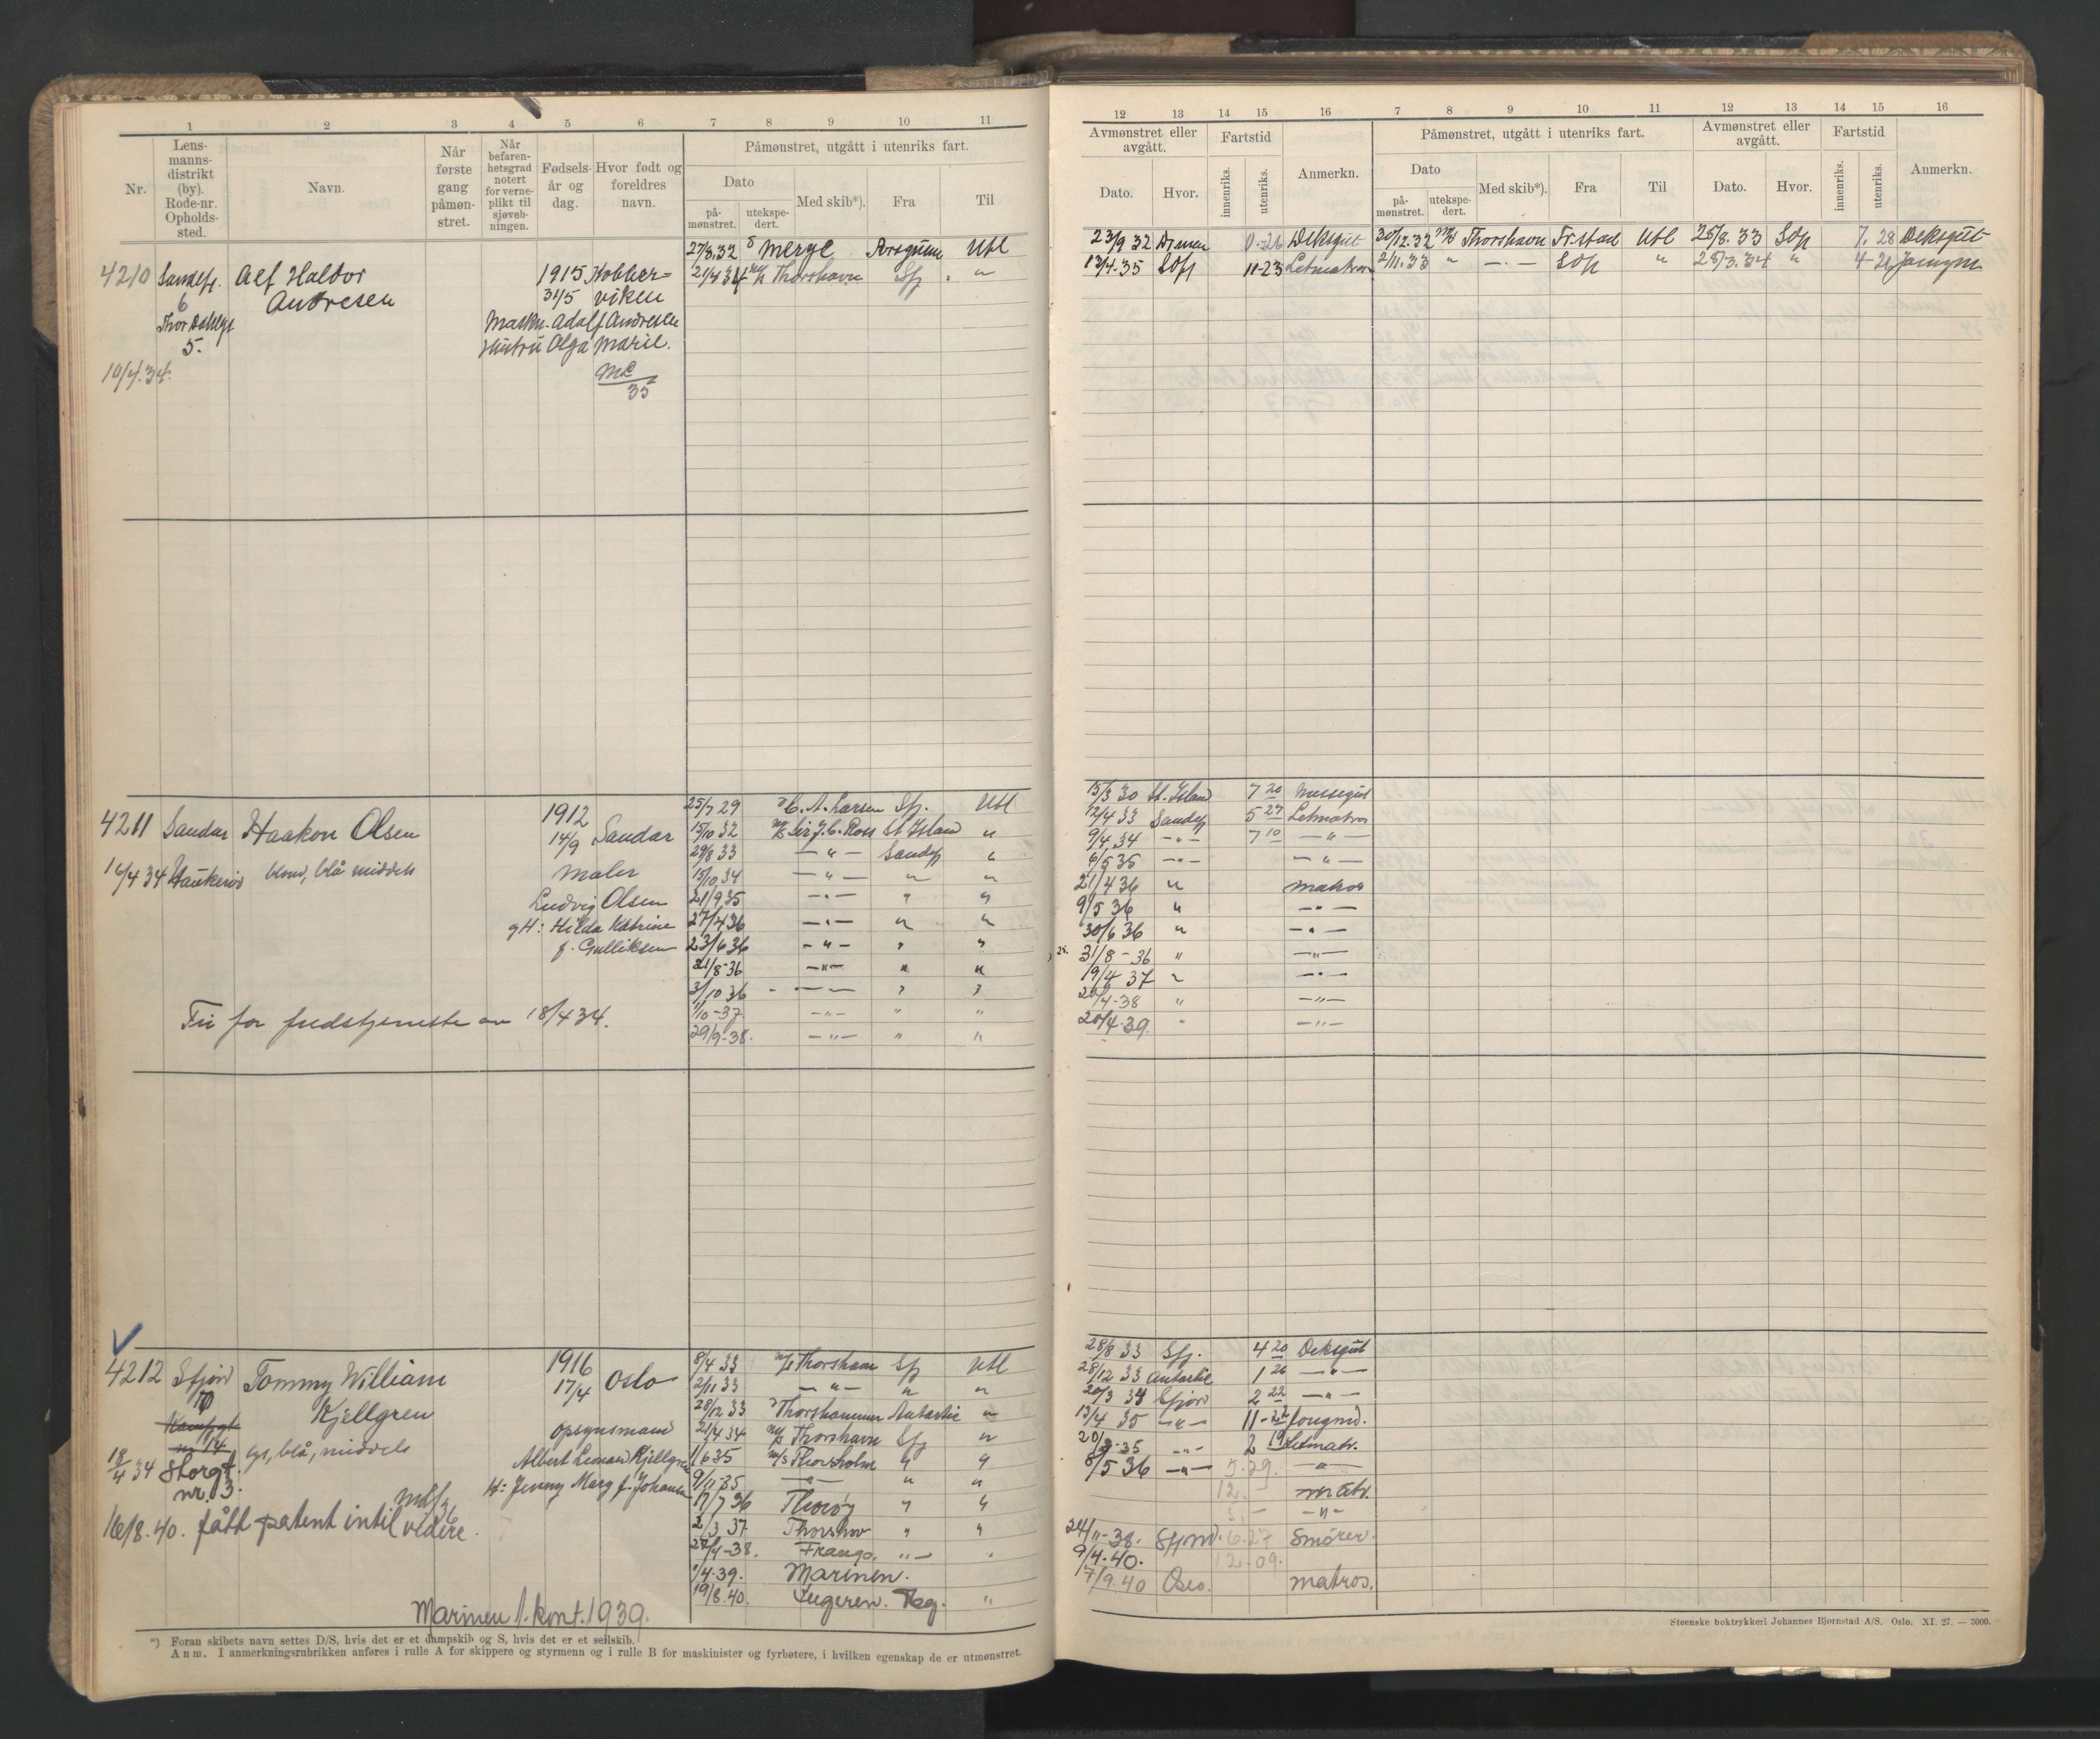 1 2 3 4 5 6 7 8 9 10 11
Nr. Lens-manns-distrikt (by). Rode-nr. Opholds-sted. Navn. Når første gang påmøn-stret. Når befaren-hetsgrad notert for verne-plikt til sjøveb-ningen. Fødsels-år og dag. Hvor født og foreldres navn. Påmønstret, utgått i utenriks fart.
Dato Med skib*). Fra Til
på-mønstret. utekspe-dert.
27/3.32 Merge Porsgrunn Utl
4210 Sandefj. Alf Haldor 1915 Kobber- 21/4 34 m/s Thorshavn Sfj "
6 Andresen 31/5 viken
Thor Dahlsgt Maskn. Adolf Andresen
5. Hustru Olga Marie.
10/4.34.
35
25/7 29 C. A. Larsen Sfj. Utl
4211 Sandar Haakon Olsen 1912 14/9 Sandar 15/10 32 m/s Sir J. C. Ross St Island "
29/8 33 — " — Sandefj "
16/4 34 Haukerød blond, blå middels maler 15/10 34 — " — " "
Ludvig Olsen 21/9 35 — " — " "
gH: Hilda Katrine 27/4 36 — " — " "
f. Gulliksen 23/6 36 — " — " "
21/8-36 — " — " "
3/10 36 — " — " "
Fri for fredstjeneste an 18/4 34. 1/10-37 — " — " "
29/9-38. — " — " "
4212 Sfjord Tommy William 1916 17/4 Oslo 8/4 33 m/s Thorshavn Sfj Utl
2/11 33 — " — " "
Kjellgren 28/12 33 Thorshammer Antarctic "
opsynsmand 21/4 34 m/s Thorshavn Sfj "
18/4 34 Storgt. nr. 3. blå, middels Albert Leonard Kjellgren 1/6 35 m/s Thorsholm " "
H: Jenny Marg f. Johansen 9/11 35 — " — " "
17/7 36 Thorøy " "
16/8.40. fått patent intil videre. 2/3 37 Thorshov " "
-38. Frango. " —
1/4.39. Marinen.
19/8.40. "
Marinen 1. kont. 1939.
*) Foran skibets navn settes D/S, hvis det er et dampskib og S, hvis det er et seilskib.
Anm. I anmerkningsrubrikken anføres i rulle A for skippere og styrmenn og i rulle B for maskinister og fyrbøtere, i hvilken egenskap de er utmønstret.
12 13 14 15 16 7 8 9 10 11 12 13 14 15 16
Avmønstret eller avgått. Fartstid Anmerkn. Påmønstret, utgått i utenriks fart. Avmønstret eller avgått. Fartstid Anmerkn.
Dato. Hvor. innenriks. utenriks. Dato på-mønstret. utekspe-dert. Med skib*). Fra Til Dato. Hvor. innenriks. utenriks.
23/9 32 Dmen 0-26 Deksgut 30/12.32 m/s Thorshavn Fr.stad Utl 25/8.33 SOfj 7. 28 Deksgut
13/4.35 SOfj 11-23 Letmatros 2/11.33 " — . — SOfj " 25/3.34 " 4-21 Jomgm
15/3 30 St. Island 7 20 Messegut
12/4 33 Sandefj 5 27 Letmatros
9/4.34 — " — 7 10 — " —
6/5 35 — " — — " —
21/4 36 " matros
9/5 36 " — " —
30/6 36 " — " —
31/8-36 " — " —
19/4 37 " — " —
/4-38 " — " —
20/4.39. " — " —
28/8 33 Sfj. 4 20 Deksgut
28/12 33 Antarctic 1 26 — " —
20/3 34 Sfjord 2 22 — " —
13/4 35 — " — 11-22 Jongmd.
-35 — " — 2 19 Letmatr.
8/5 36 — " — 5.29. — " —
12. — matr.
5. — — " —
24/11-38. Sfjord. 6.27 Smører.
9/4.40. 12.09.
17/9.40 Oslo. matros.
Steenske boktrykkeri Johannes Bjørnstad A/S. Oslo. XI. 27. — 3000.